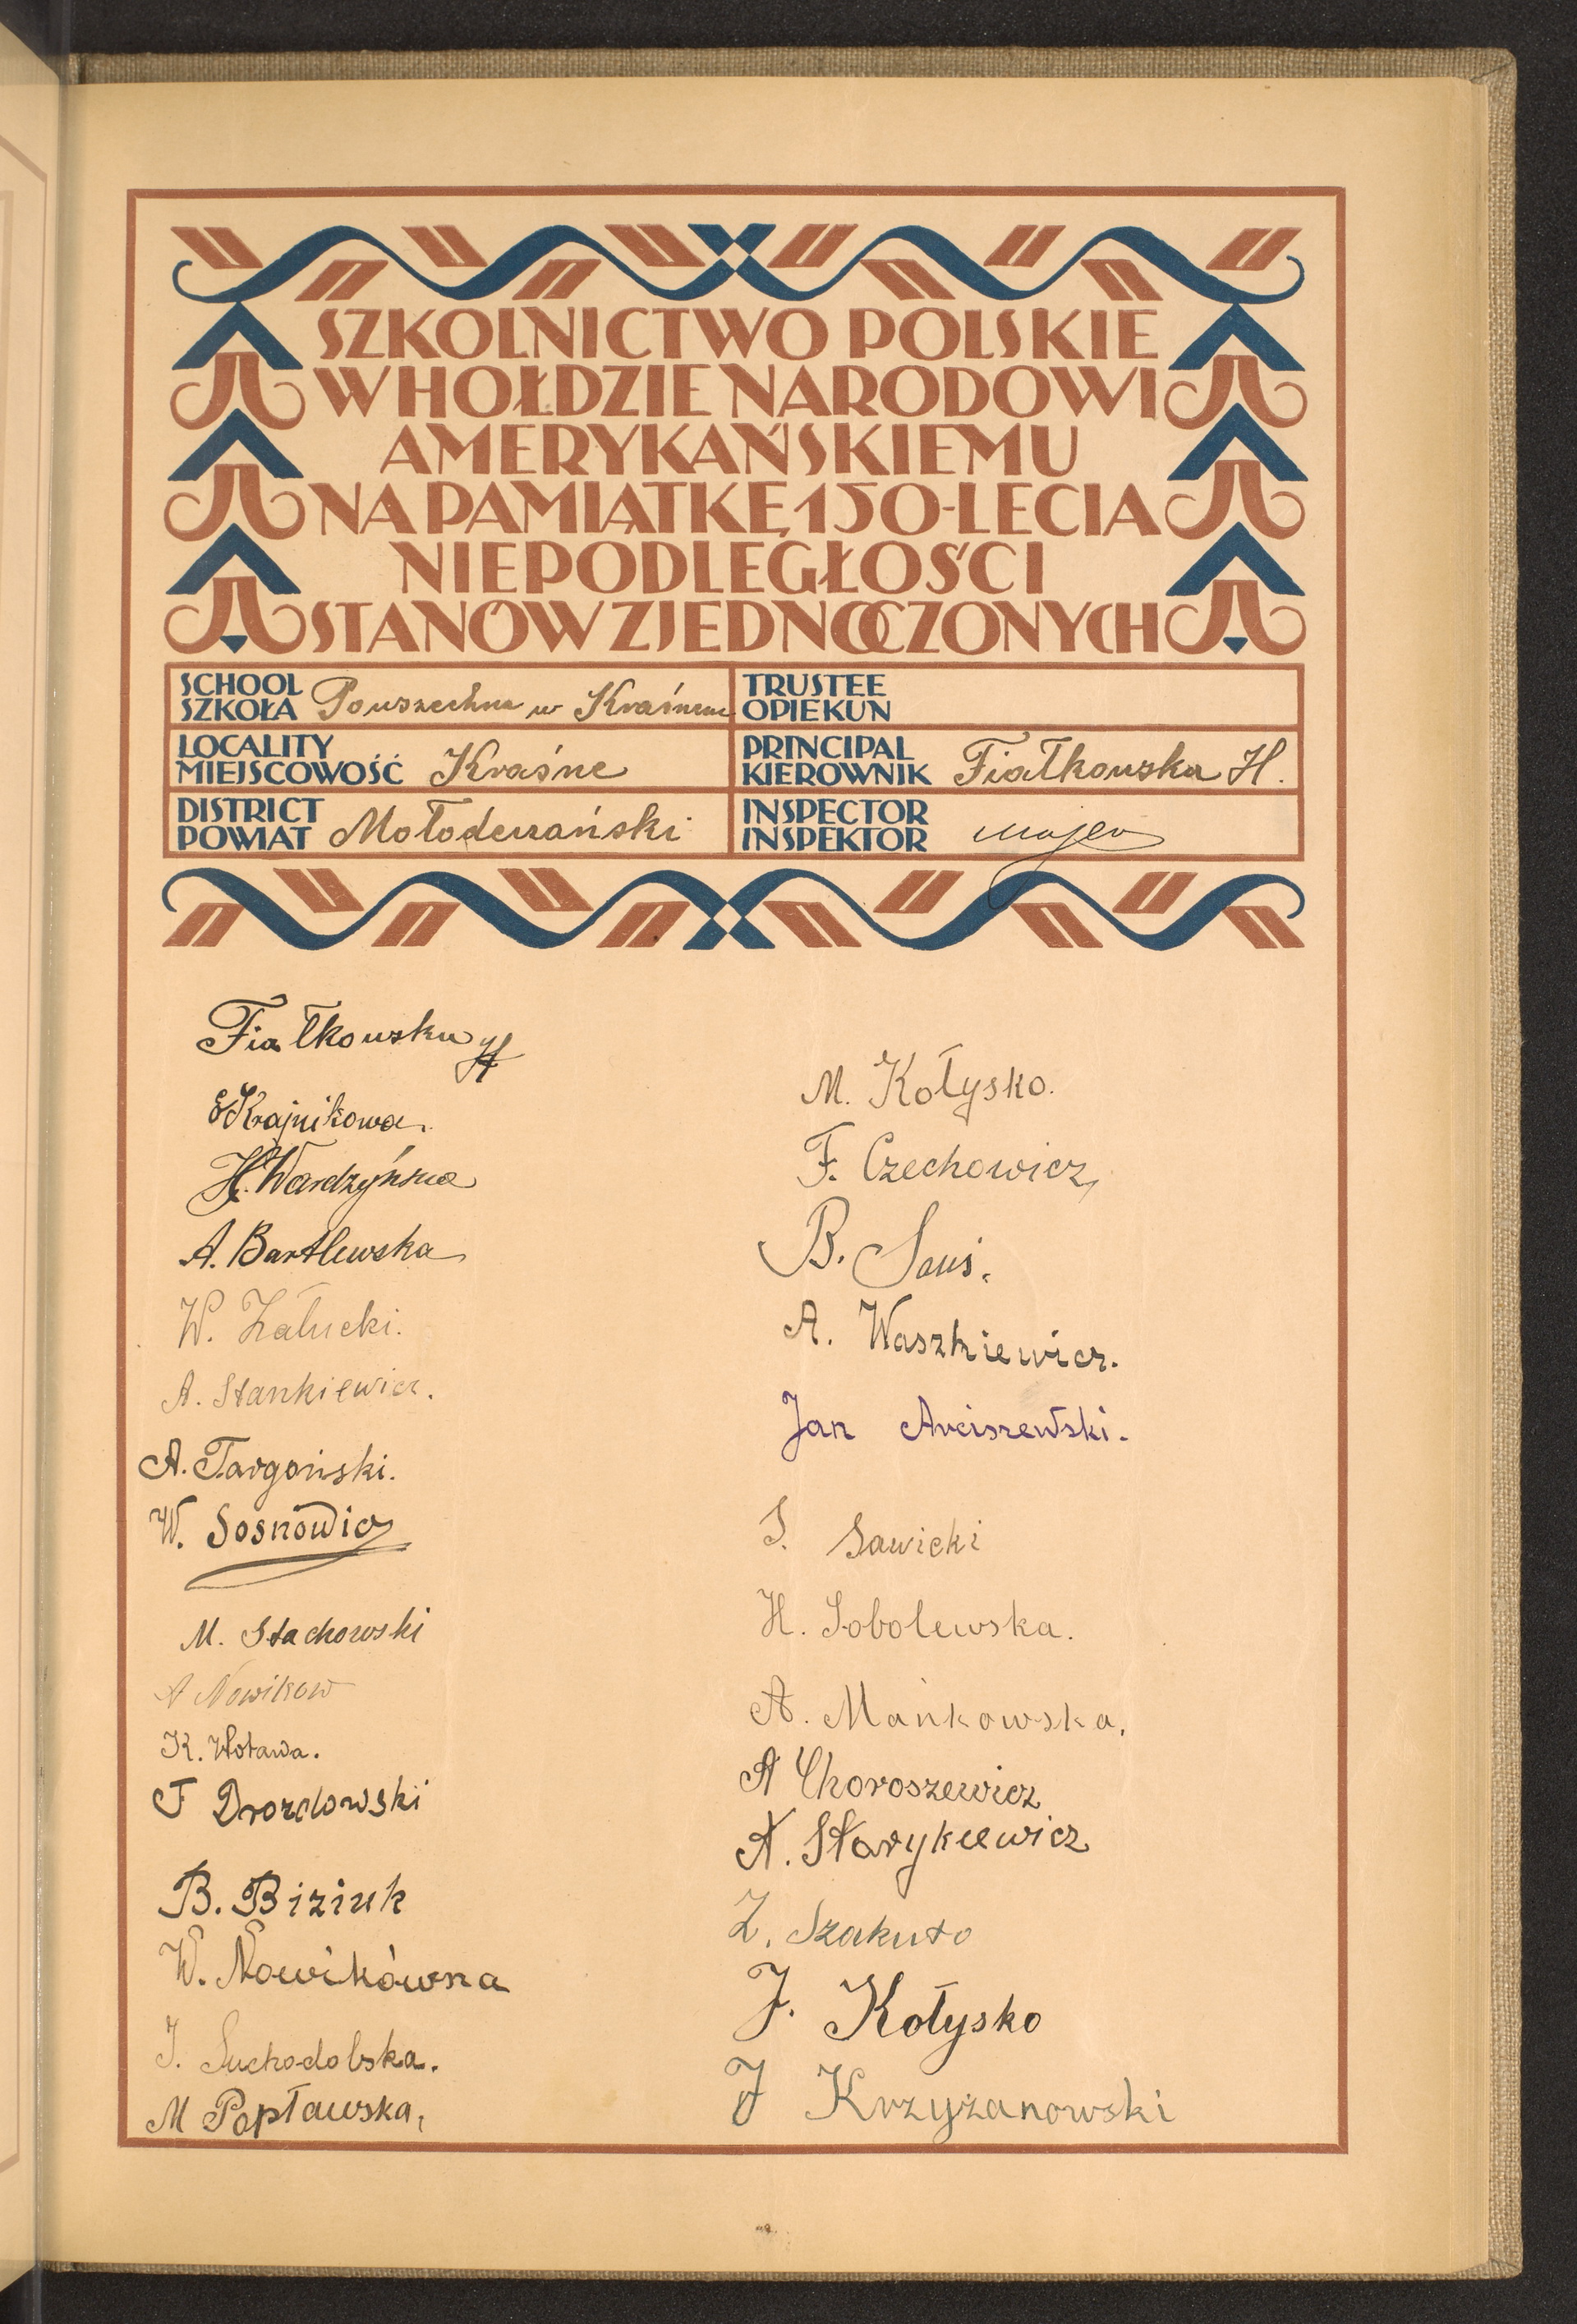 SZKOLNICTWO POLSKIE
W HOŁDZIE NARODOWI
AMERYKAŃSKIEMU
NA PAMIĄTKĘ 150-LECIA
NIEPODLEGŁOŚCI
STANÓW ZJEDNOCZONYCH
SCHOOL
SZKOŁA Powszechna w Kraśnem
TRUSTEE
OPIEKUN
LOCALITY
MIEJSCOWOŚĆ Kraśne
PRINCIPAL
KIEROWNIK Fiałkowska H.
DISTRICT
POWIAT Mołodeczański
INSPECTOR
INSPEKTOR
Fiałkowska H
E Krajnikowa.
H. Wardzyńska
A. Bartlewska
W. Załucki.
A. Stankiewicz.
A. Targoński.
W. Sosnowicz
M. Stachowski
A Nowikow
K. Wotawa.
F Drozdowski
B. Biziuk
W. Nowikówna
J. Suchodolska.
M Popławska,
M. Kołysko.
F. Czechowicz,
B. Sauś.
A. Waszkiewicz.
Jan Arciszewski.
S. Sawicki
H. Sobolewska.
A. Mańkowska.
A Choroszewicz
A. Starykiewicz
Z. Szakuto
J. Kołysko
J Krzyżanowski